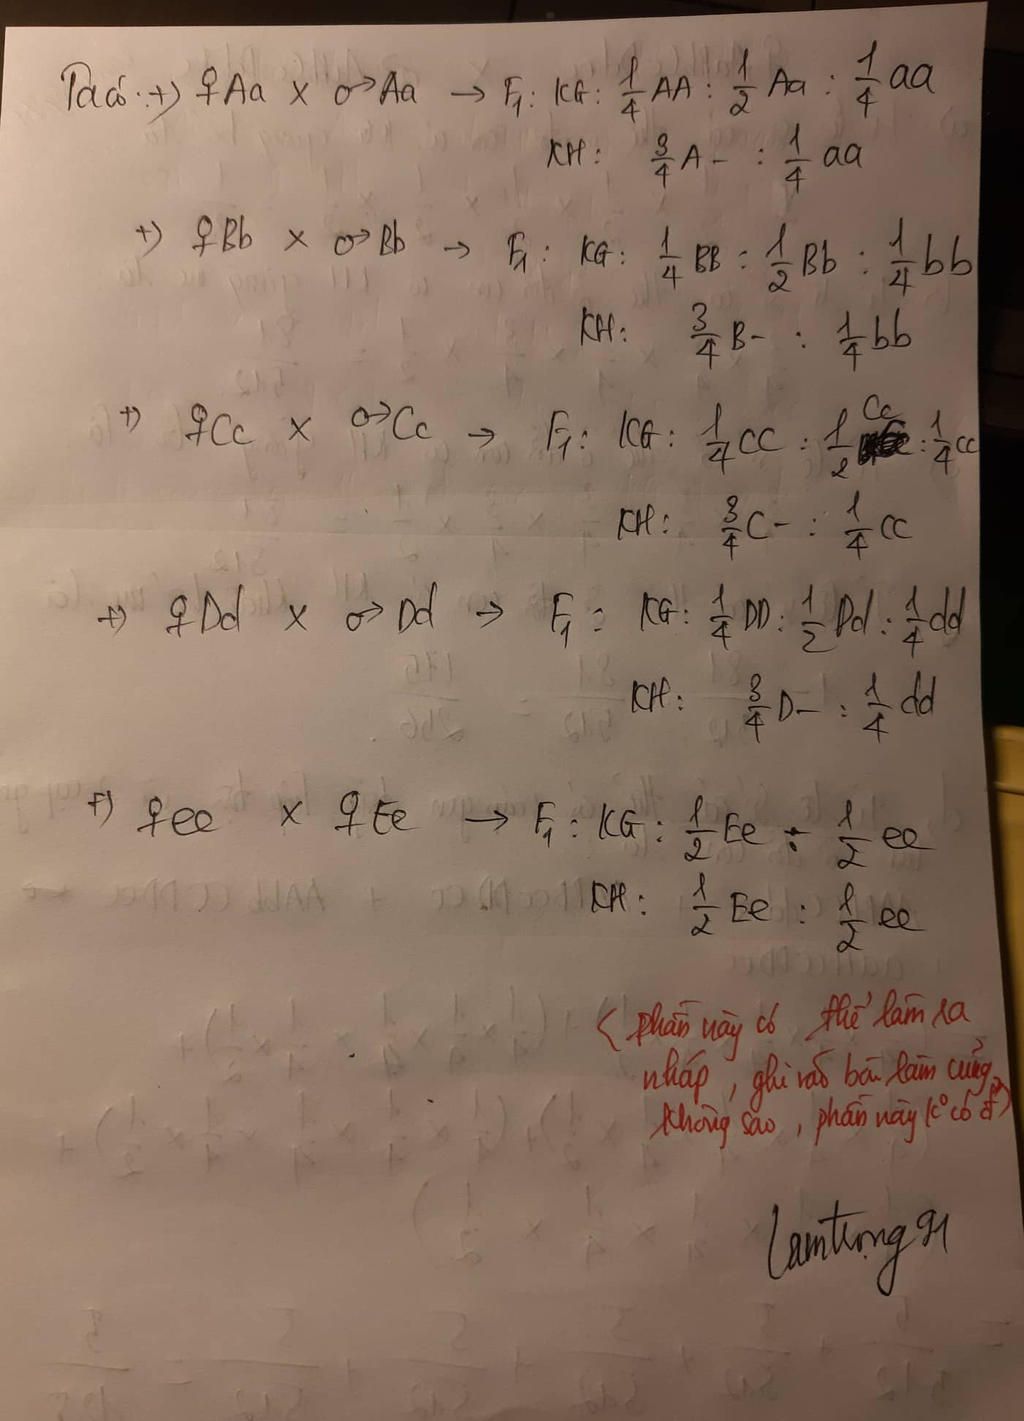 Ta có: +) ♀Aa x ♂Aa → F₁: KG: 1/4 AA : 1/2 Aa : 1/4 aa
KH: 3/4 A- : 1/4 aa
+) ♀Bb x ♂Bb → F₁: KG: 1/4 BB : 1/2 Bb : 1/4 bb
KH: 3/4 B- : 1/4 bb
+) ♀Cc x ♂Cc → F₁: KG: 1/4 CC : 1/2 Cc : 1/4 cc
KH: 3/4 C- : 1/4 cc
+) ♀Dd x ♂Dd → F₁: KG: 1/4 DD : 1/2 Dd : 1/4 dd
KH: 3/4 D- : 1/4 dd
+) ♀ee x ♀Ee → F₁: KG: 1/2 Ee : 1/2 ee
KH: 1/2 Ee : 1/2 ee
( phần này có thể làm ra
nháp, ghi vào bài làm cũng
không sao, phần này k° có đ)
Lamtrong91